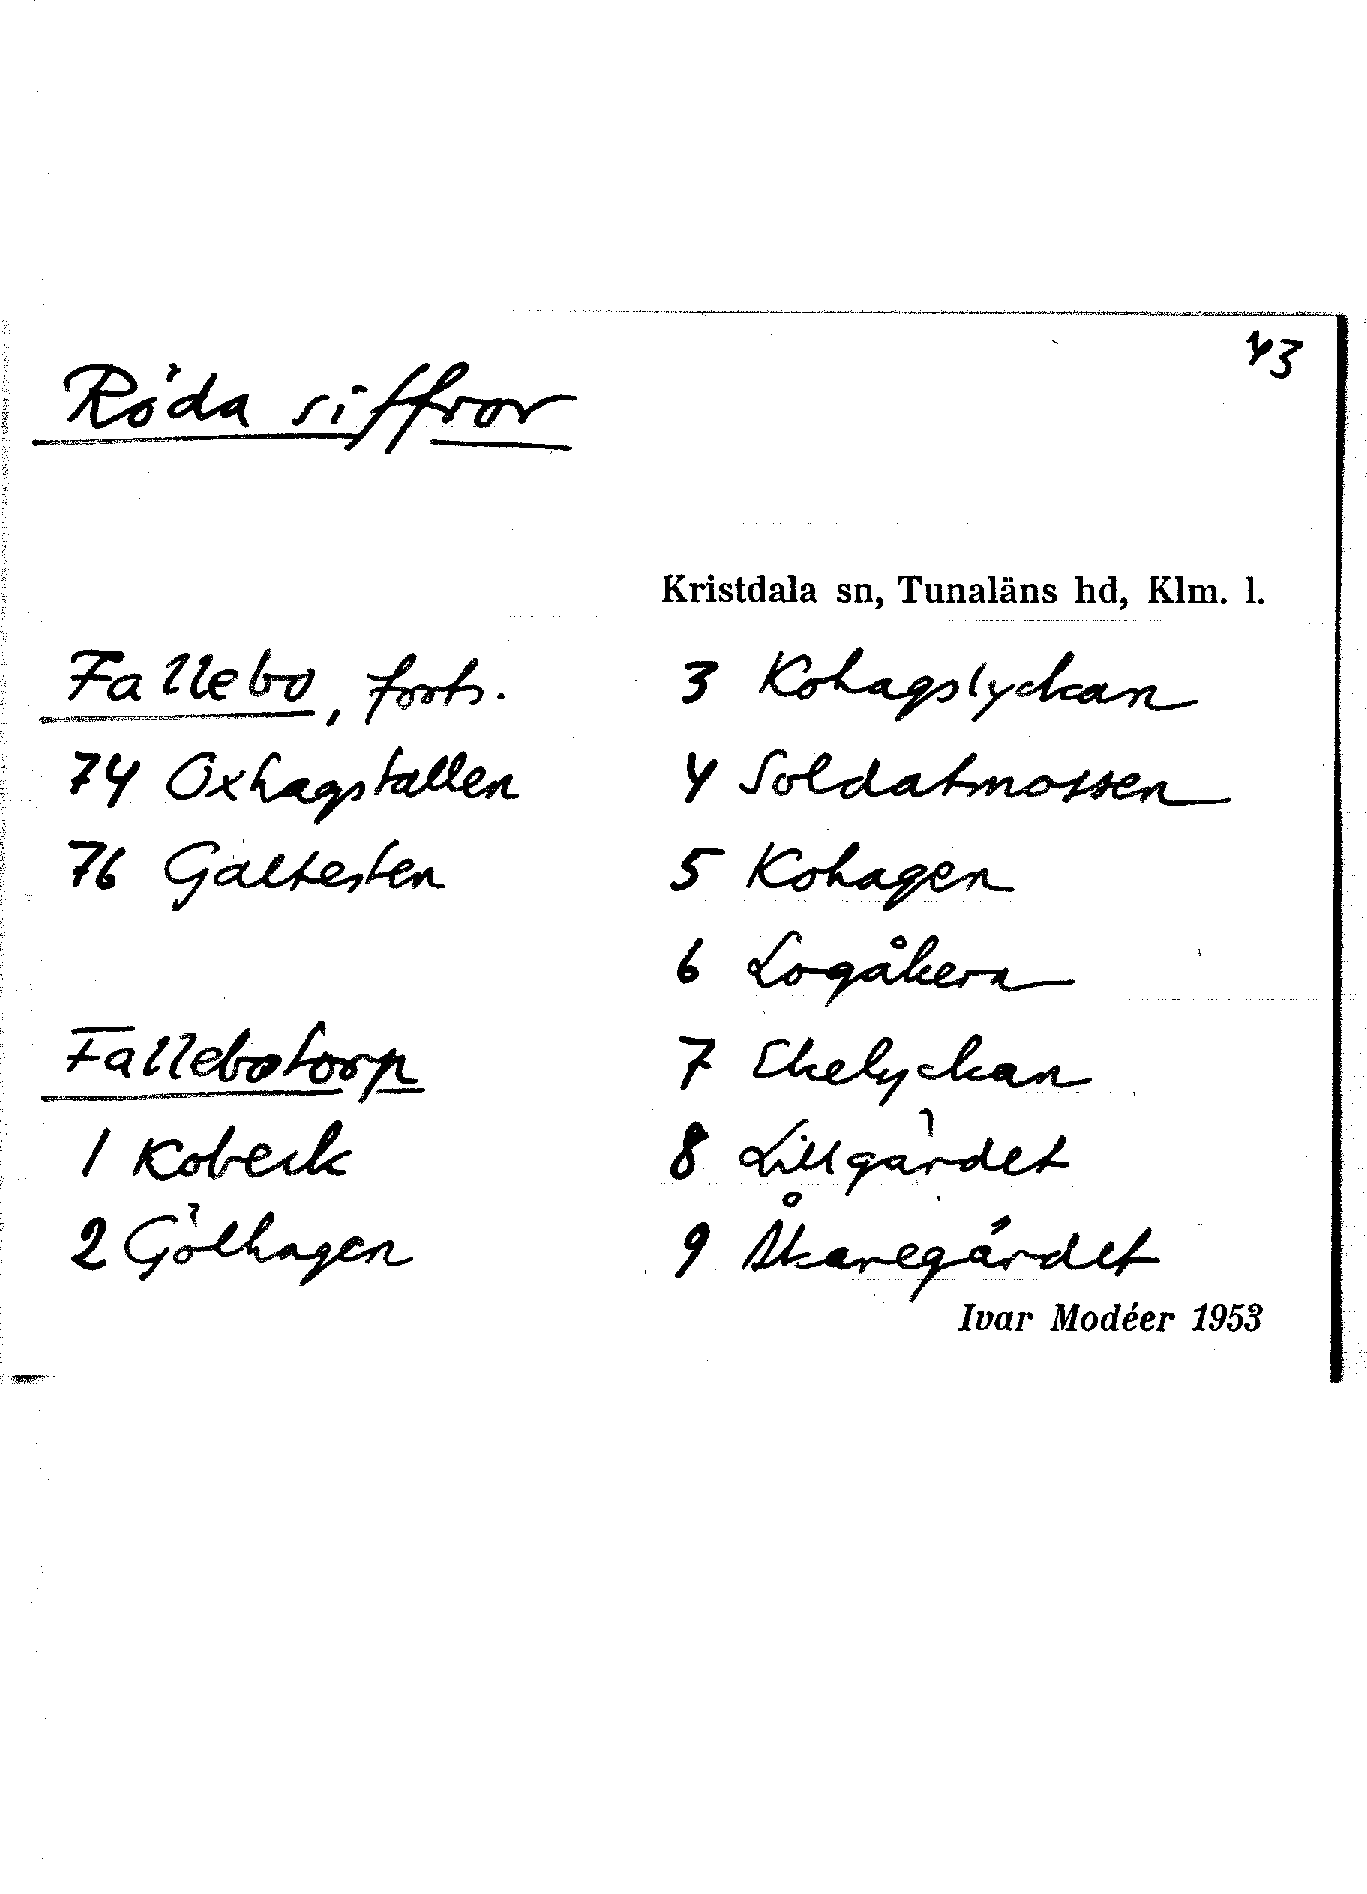 43
Röda siffror
Kristdala sn, Tunaläns hd, Klm. l.
Fallebo, forts.
74 Oxhagstallen
76 Galtesten
Fallebotorp
1 Kobeck
2 Gölhagen
3 Kohagslyckan
4 Soldatmossen
5 Kohagen
6 Logåkern
7 Ekelyckan
8 Lillgärdet
9 Åkaregärdet
Ivar Modéer 1953